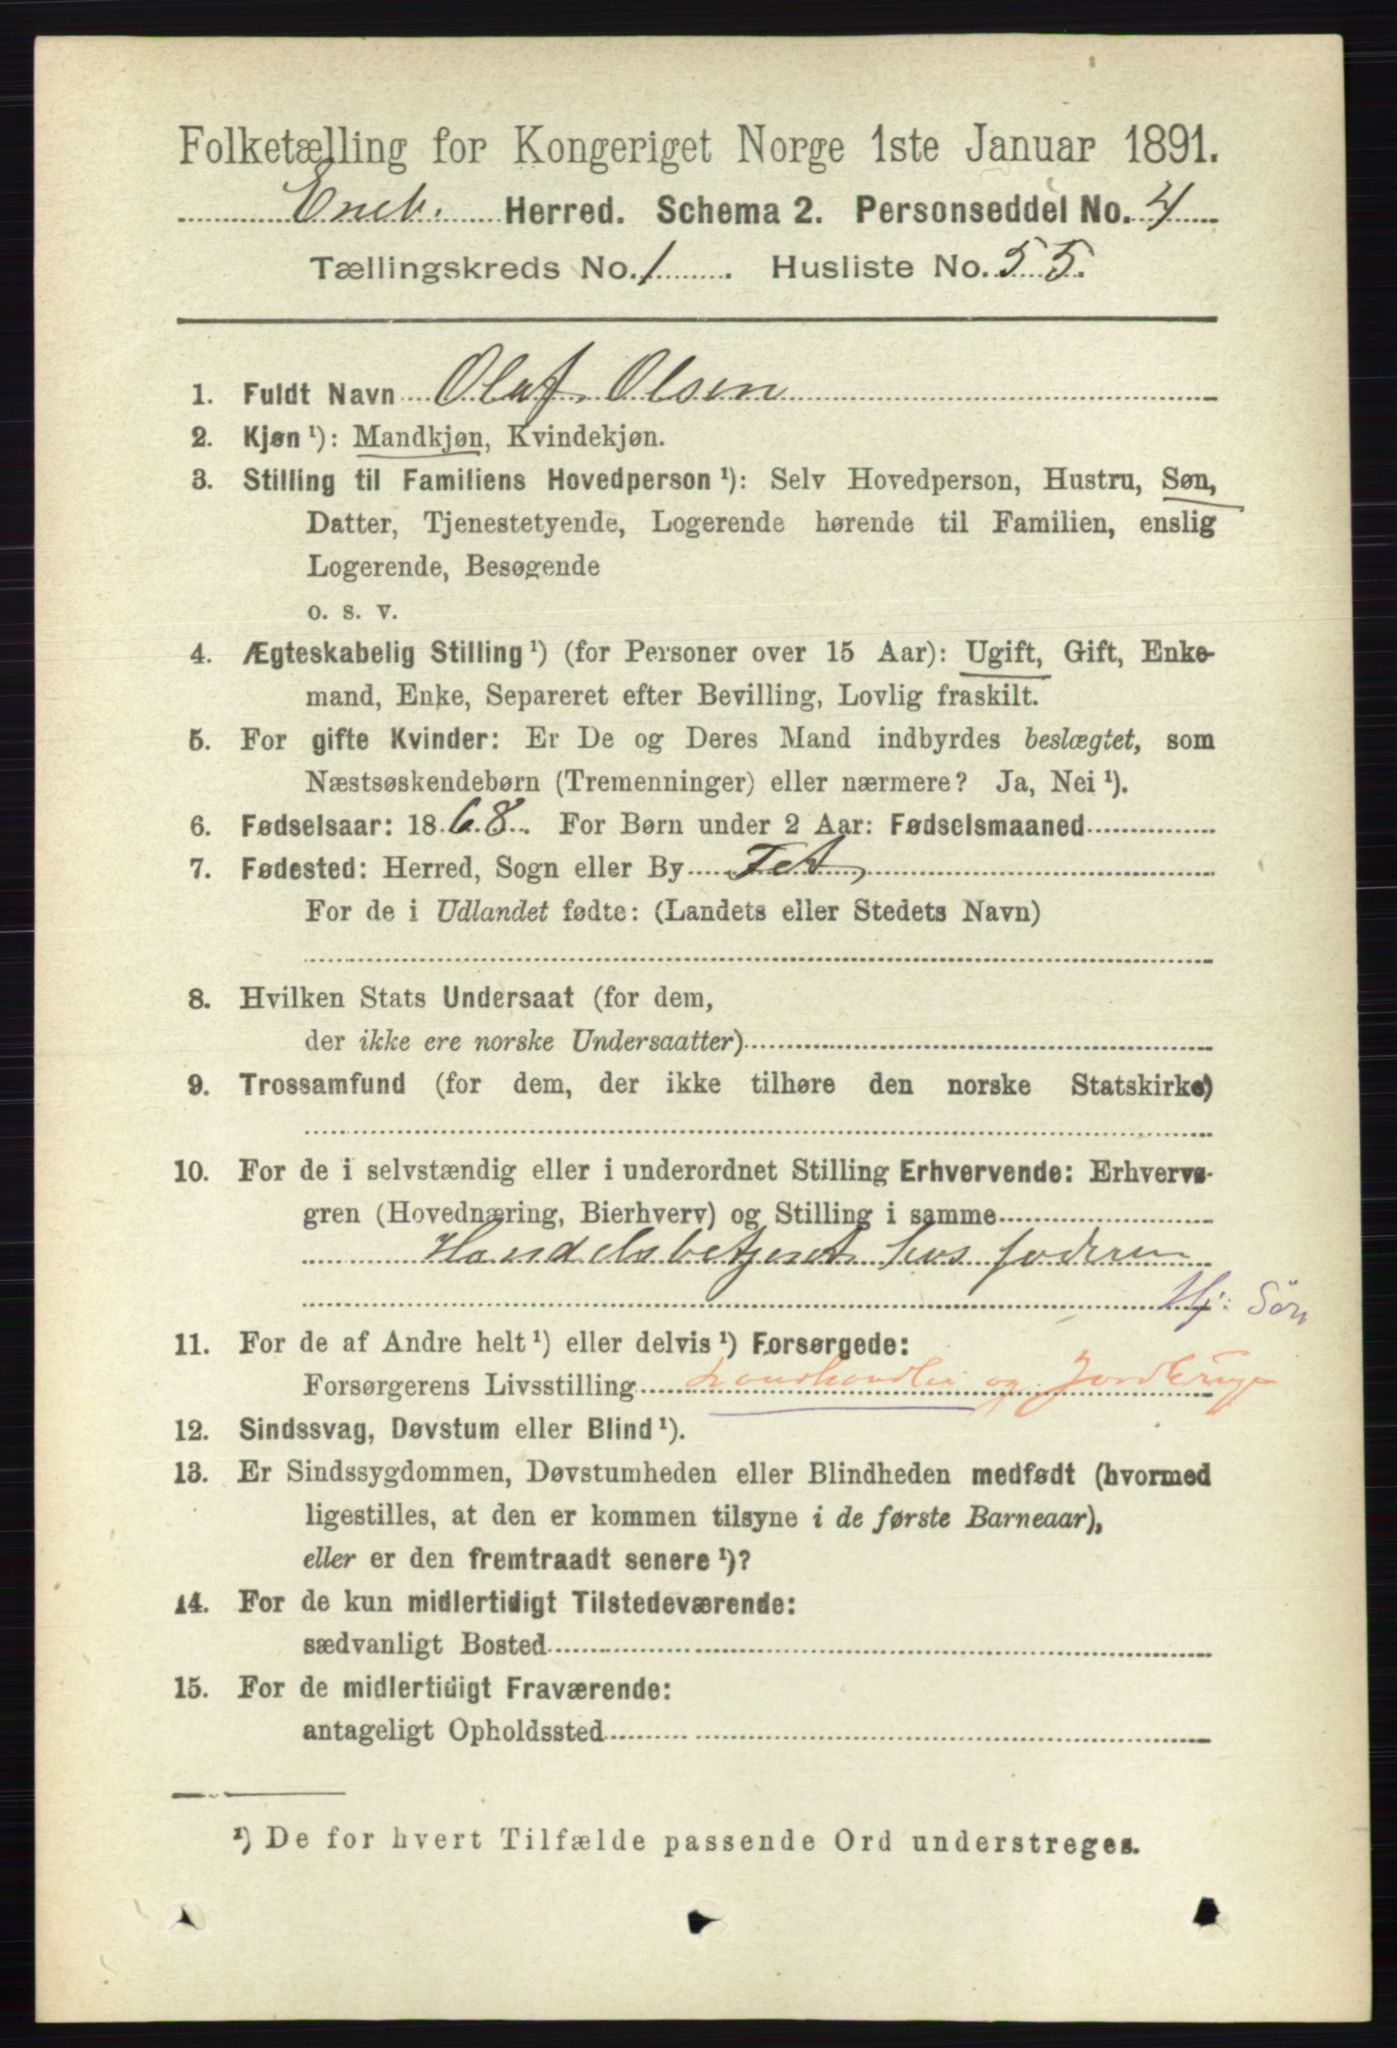 Folketælling for Kongeriget Norge 1ste Januar 1891.
Eneb. Herred. Schema 2. Personseddel No. 4
Tællingskreds No. 1. Husliste No. 55.
1. Fuldt Navn Olaf Olsen
2. Kjøn ¹): Mandkjøn, Kvindekjøn.
3. Stilling til Familiens Hovedperson ¹): Selv Hovedperson, Hustru, Søn,
Datter, Tjenestetyende, Logerende hørende til Familien, enslig
Logerende, Besøgende
o. s. v.
4. Ægteskabelig Stilling ¹) (for Personer over 15 Aar): Ugift, Gift, Enke-
mand, Enke, Separeret efter Bevilling, Lovlig fraskilt.
5. For gifte Kvinder: Er De og Deres Mand indbyrdes beslægtet, som
Næstsøskendebørn (Tremenninger) eller nærmere? Ja, Nei ¹).
6. Fødselsaar: 1868. For Børn under 2 Aar: Fødselsmaaned
7. Fødested: Herred, Sogn eller By Fet,
For de i Udlandet fødte: (Landets eller Stedets Navn)
8. Hvilken Stats Undersaat (for dem,
der ikke ere norske Undersaatter)
9. Trossamfund (for dem, der ikke tilhøre den norske Statskirke)
10. For de i selvstændig eller i underordnet Stilling Erhvervende: Erhvervs-
gren (Hovednæring, Bierhverv) og Stilling i samme
Handelsbetjent hos faderen
Hj: Sön
11. For de af Andre helt ¹) eller delvis ¹) Forsørgede:
Forsørgerens Livsstilling Landhandler og Jordbruger
12. Sindssvag, Døvstum eller Blind ¹).
13. Er Sindssygdommen, Døvstumheden eller Blindheden medfødt (hvormed
ligestilles, at den er kommen tilsyne i de første Barneaar),
eller er den fremtraadt senere ¹)?
14. For de kun midlertidigt Tilstedeværende:
sædvanligt Bosted
15. For de midlertidigt Fraværende:
antageligt Opholdssted
¹) De for hvert Tilfælde passende Ord understreges.